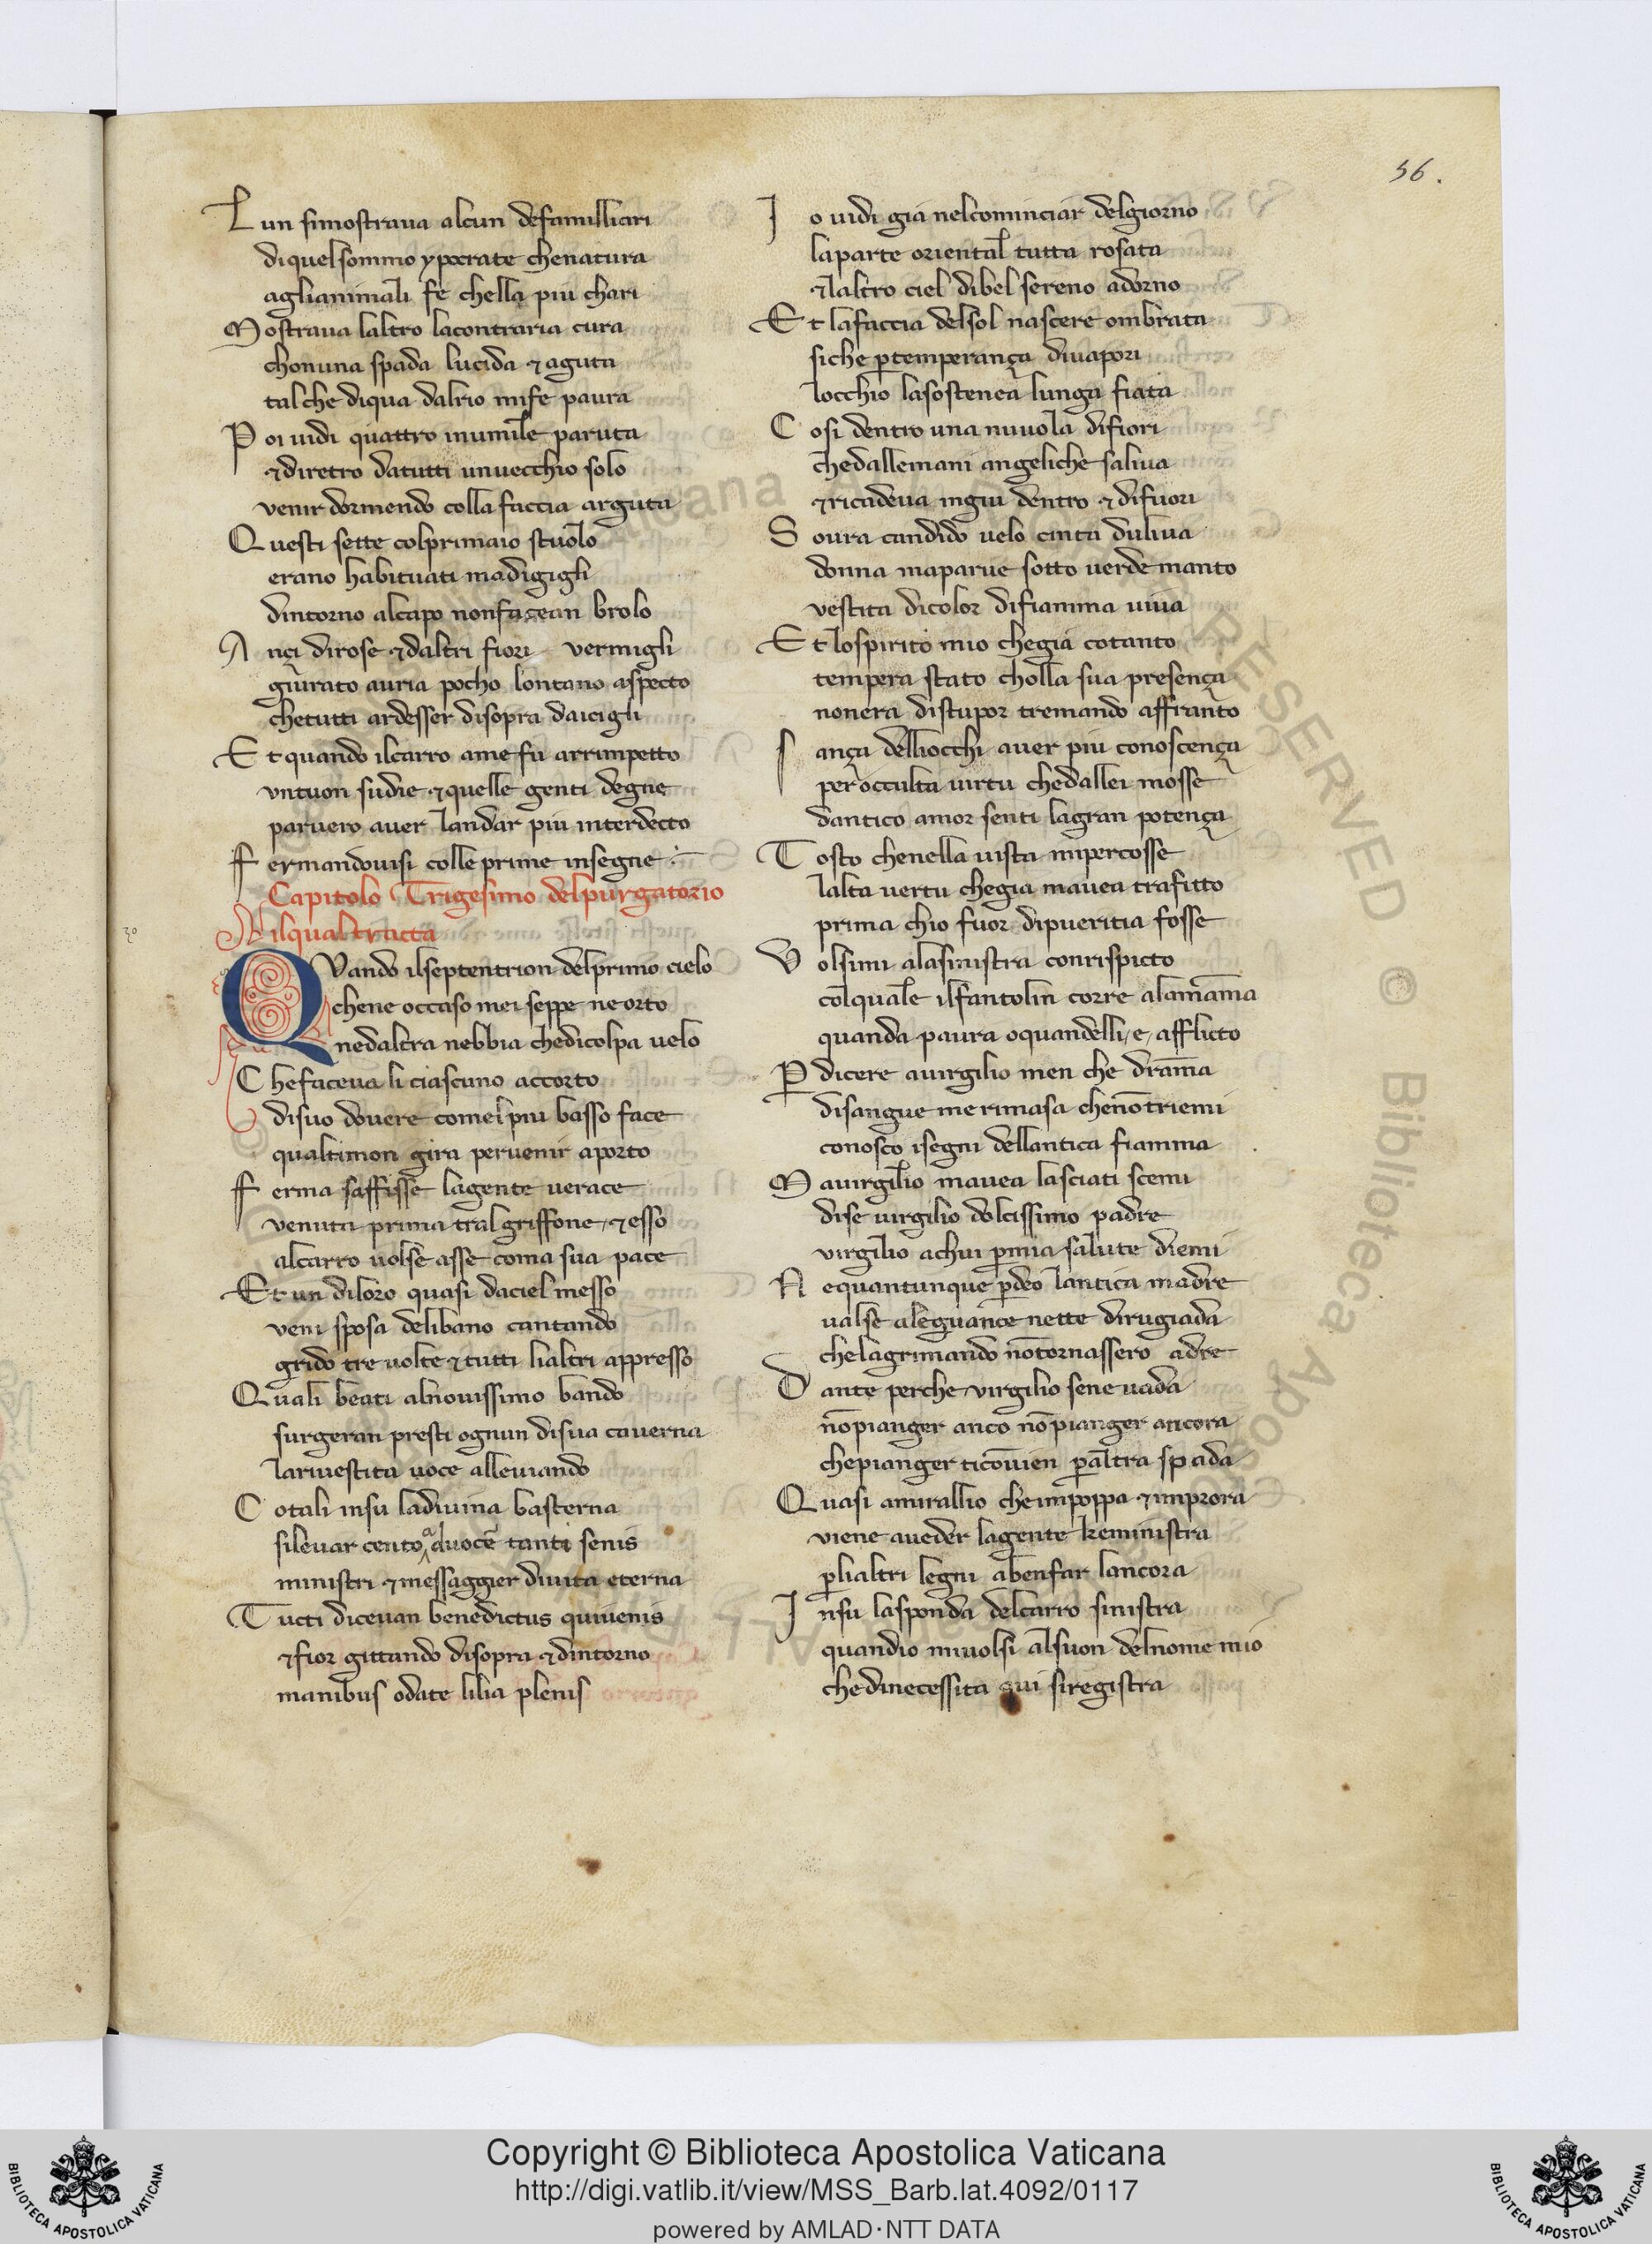 56.
Lun simostraua alcun defamilliari
diquelsommo ypocrate chenatura
aglianimali fe chella piu chari
Mostraua laltro lacontraria cura
chonuna spada lucida ⁊ aguta
talche diqua dalrio mife paura
Poi uidi quattro inumile paruta
⁊diretro datutti unuecchio solo
venir dormendo colla faccia arguta
Questi sette colprimaio stuolo
erano habituati madigigli
dintorno alcapo nonfacean brolo
Ançi dirose ⁊daltri fiori vermigli
giurato auria pocho lontano aspecto
chetutti ardesser disopra daicigli
Et quando ilcarro ame fu arrimpetto
vntuon sudie ⁊quelle genti degne
paruero auer landar piu interdecto
Fermandouisi colle prime insegne
Capitolo Trigesimo delpurgatorio
Nilqual tracta
30
QVando ilseptentrion delprimo cielo
chene occaso mei seppe ne orto
nedaltra nebbia chedicolpa uelo
Chefaceua li ciascuno accorto
disuo douere comelpiu basso face
qualtimon gira peruenir aporto
Ferma saffisse lagente uerace
venuta prima tral griffone ⁊esso
alcarro uolse asse coma sua pace
Et un diloro quasi daciel messo
veni sposa delibano cantando
grido tre uolte ⁊tutti lialtri appresso
Quali beati alnouissimo bando
surgeran presti ognun disua cauerna
lariuestita uoce alleuiando
Cotali insu ladiuina basterna
sileuar cento a duocē tanti senis
ministri ⁊messaggier diuita eterna
Tucti diceuan benedictus quiuenis
⁊fior gittando disopra ⁊dintorno
manibus odate lilia plenis
Io uidi gia nelcominciar delgiorno
laparte oriental tutta rosata
⁊laltro ciel dibel sereno adorno
Et lafaccia delsol nascere ombrata
siche ꝑtemperança diuapori
locchio lasostenea lunga fiata
Cosi dentro una nuuola difiori
chedallemani angeliche saliua
⁊ricadeua ingiu dentro ⁊difuori
Soura candido uelo cinta duliua
donna maparue sotto uerde manto
vestita dicolor difiamma uiua
Et lospirito mio chegia cotanto
tempera stato cholla sua presença
nonera distupor tremando affranto
Sança delliocchi auer piu conoscença
per occulta uirtu chedallei mosse
dantico amor senti lagran potença
Tosto chenella uista mipercosse
lalta uertu chegia mauea trafitto
prima chio fuor dipueritia fosse
Volsimi alasinistra conrispicto
colquale ilfantolin corre alamāma
quanda paura oquandelli, e, afflicto
Ꝑdicere auirgilio men che drāma
disangue merimasa chenō triemi
conosco isegni dellantica fiamma
Mauirgilio mauea lasciati scemi
dise uirgilio dolcissimo padre
virgilio achui ꝑmia salute diemi
Nequantunque ꝑdeo lantica madre
ualse aleguance nette dirugiada
chelagrimando nōtornassero adre
Dante perche virgilio sene uada
nōpianger anco nō pianger ancora
chepianger ticōuien ꝑaltra spada
Quasi amirallio cheimpoppa ⁊improra
viene aueder lagente keministra
ꝑlialtri legni abenfar lancora
Insu lasponda delcarro sinistra
quandio miuolsi alsuon delnome mio
chedinecessita qui siregistra
Copyright © Biblioteca Apostolica Vaticana
http://digi.vatlib.it/view/MSS_Barb.lat.4092/0117
powered by AMLAD·NTT DATA